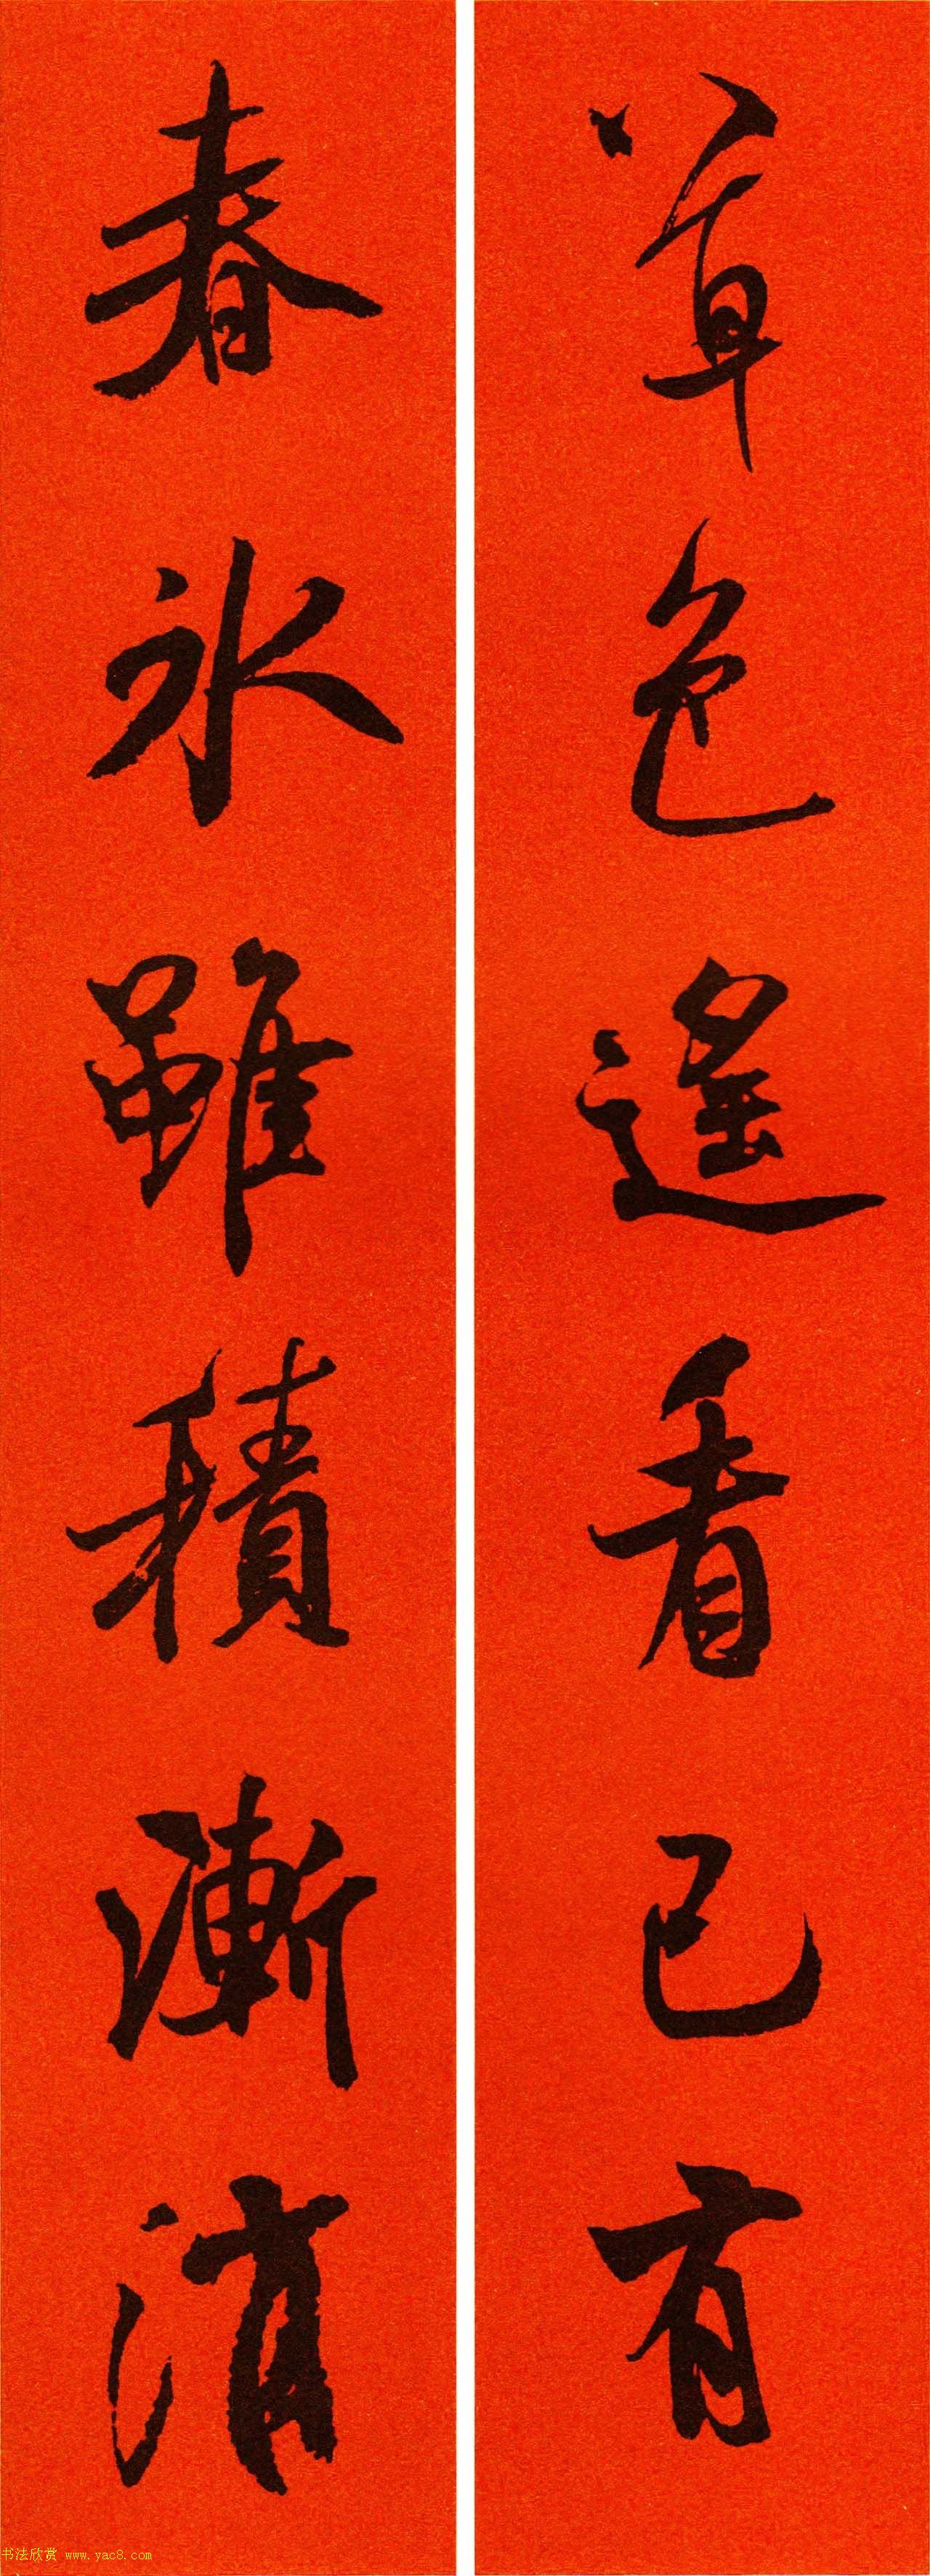 草色遥看已有
春冰雖積漸消
书法欣赏 www.yac8.com